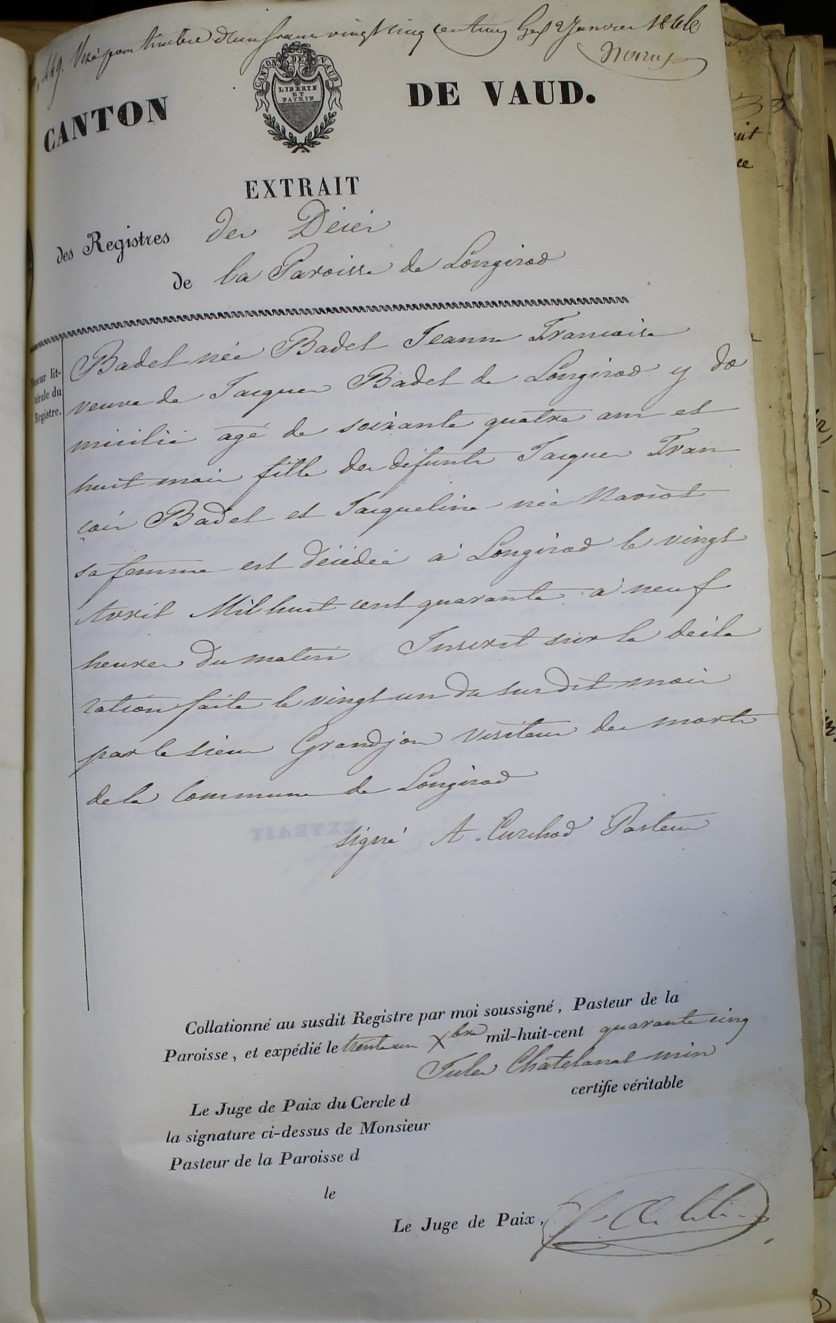 449. Visé pour timbre d'un franc vingt cinq centimes Gex 2 Janvier 1846
CANTON DE VAUD.
CANTON DE VAUD
LIBERTE
ET
PATRIE
EXTRAIT
des Registres des Décès
de la Paroisse de Longirod
Teneur lit-
térale du
Registre.
Badel née Badel Jeanne Francoise
veuve de Jacques Badel de Longirod y do
micilié agé de soixante quatre ans et
huit mois fille des défunts Jacques Fran
cois Badel et Jacqueline née
sa femme est décédée à Longirod le vingt
Avril Mil huit cent quarante à neuf
heures du matin Inscrit sur la décla
ration faite le vingt un du sur dit mois
par le sieur Grandjon visiteur des morts
de la Commune de Longirod
signé A. Curchod Pasteur
Collationné au susdit Registre par moi soussigné, Pasteur de la
Paroisse, et expédié le trente un Xbre mil-huit-cent quarante cinq
Jules Chatelanat min
Le Juge de Paix du Cercle d certifie véritable
la signature ci-dessus de Monsieur
Pasteur de la Paroisse d
le
Le Juge de Paix,